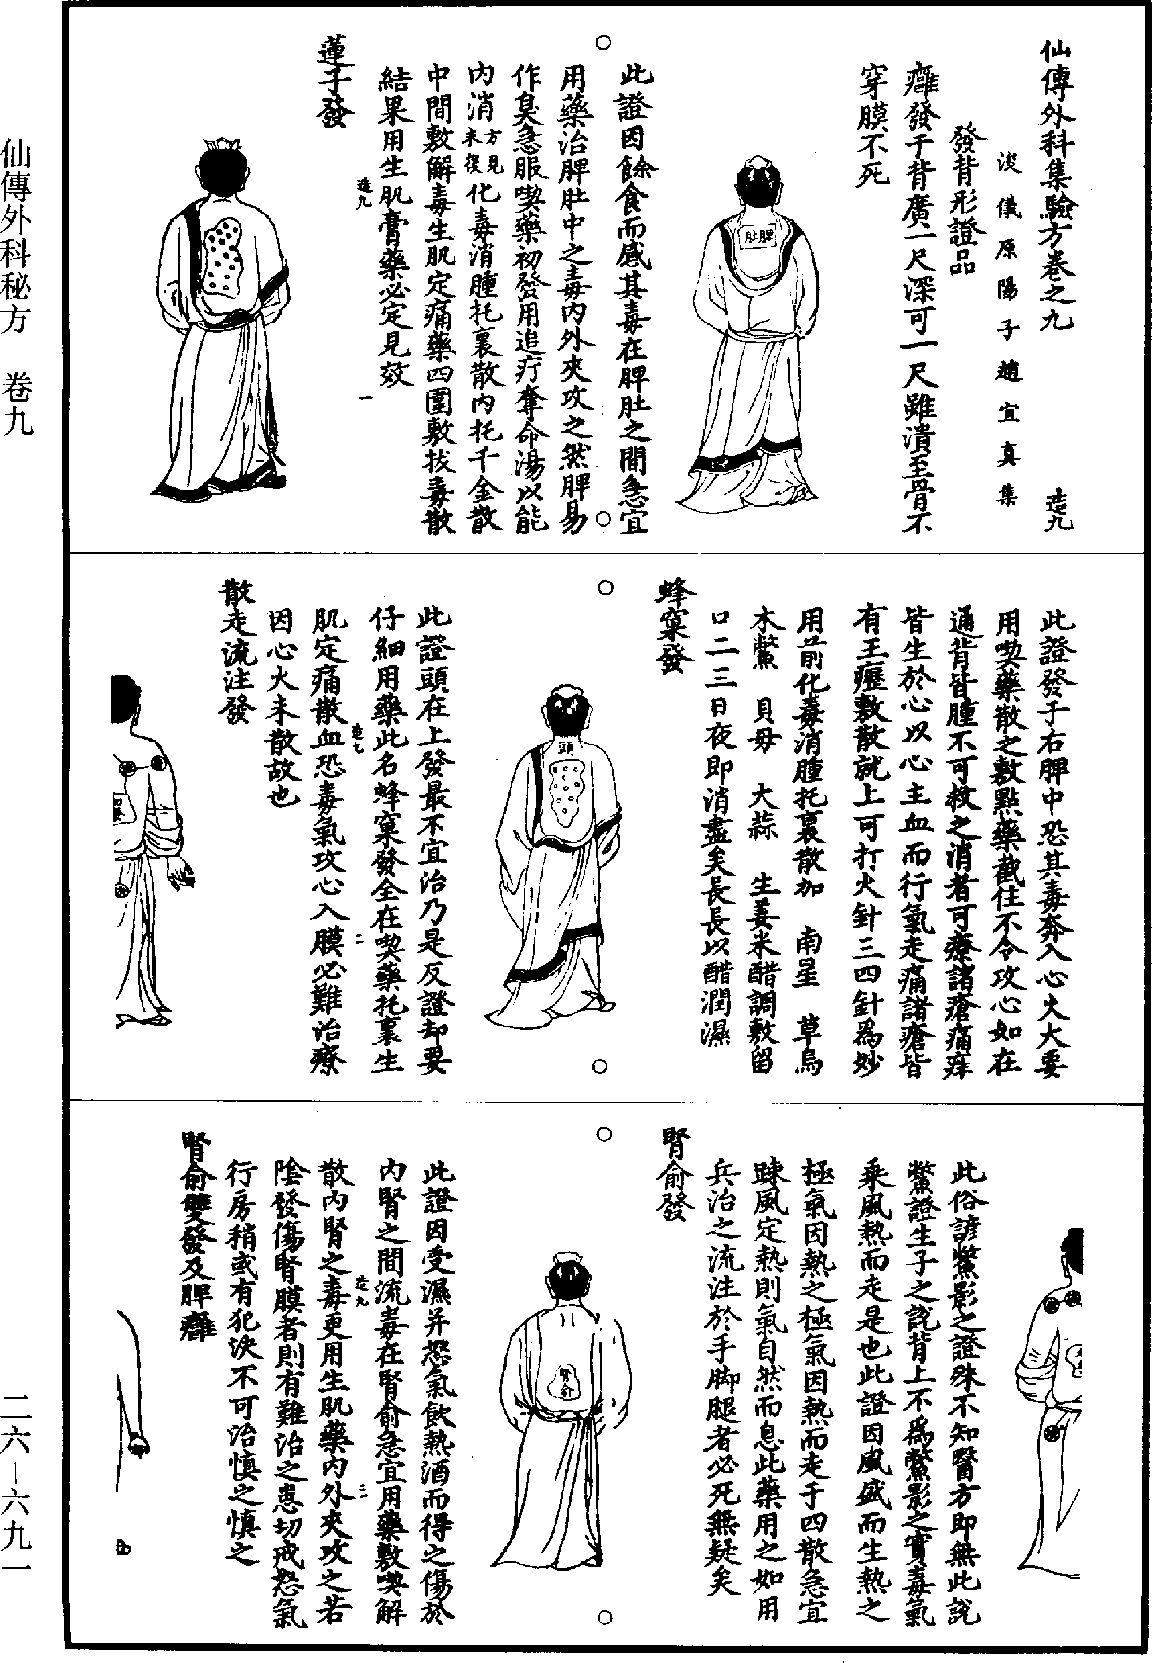 仙傳外科集驗方卷之九
造九
浚儀原陽子趙宜真集
發背形證品
癰發于背廣一尺深可一尺雖潰至骨不
穿膜不死
脾肚
此證因餘食而感其毒在脾肚之間急宜
用藥治脾肚中之毒內外夾攻之然脾易
作臭急服喫藥初發用追疔奪命湯以能
內消方見末後化毒消腫托裏散內托千金散
中間敷解毒生肌定痛藥四圍敷拔毒散
結果用生肌膏藥必定見效
造九
一
蓮子發
此證發于右脾中恐其毒奔入心火大要
用喫藥散之敷點藥截住不令攻心如在
通背皆腫不可救之消者可療諸瘡痛痒
皆生於心以心主血而行氣走痛諸瘡皆
有王瘞敷散就上可打火針三四針為妙
用前化毒消腫托裏散加　南星　草烏
木鱉　貝母　大蒜　生姜米醋調敷留
口二三日夜即消盡矣長長以醋潤濕
蜂窠發
頭
此證頭在上發最不宜治乃是反證却要
仔細用藥此名蜂窠發全在喫藥托裏生
造九
二
肌定痛散血恐毒氣攻心入膜必難治療
因心火未散故也
散走流注發
此俗諺鱉影之證殊不知醫方即無此說
鱉證生子之說背上不為鱉影之實毒氣
乘風熱而走是也此證因風盛而生熱之
極氣因熱之極氣因熱而走于四散急宜
踈風定熱則氣自然而息此藥用之如用
兵治之流注於手脚腿者必死無疑矣
腎俞發
腎俞
此證因受濕并怒氣飲熱酒而得之傷於
內腎之間流毒在腎俞急宜用藥敷喫解
造九
三
散內腎之毒更用生肌藥內外夾攻之若
陰發傷腎膜者則有難治之患切戒怒氣
行房稍或有犯決不可治慎之慎之
腎俞雙發及脾癰
仙傳外科秘方　卷九
二六—六九一